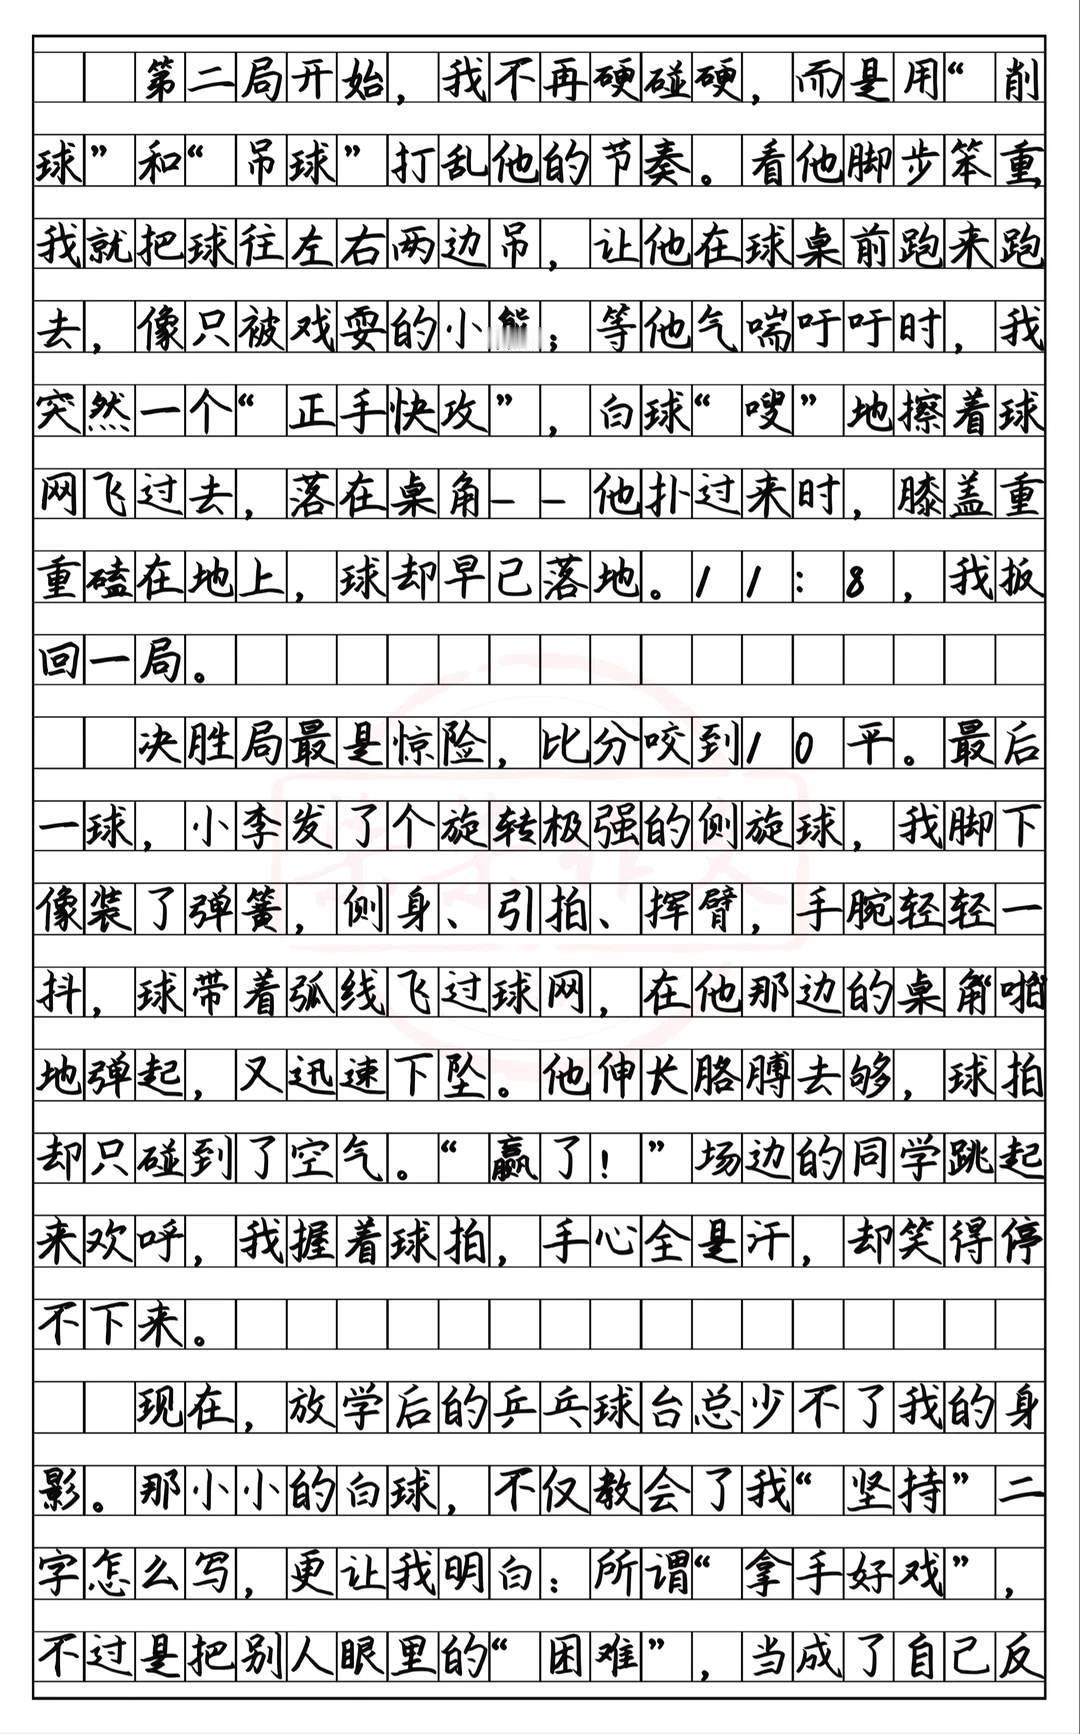 第二局开始，我不再硬碰硬，而是用“削
球”和“吊球”打乱他的节奏。看他脚步笨重，
我就把球往左右两边吊，让他在球桌前跑来跑
去，像只被戏耍的小熊；等他气喘吁吁时，我
突然一个“正手快攻”，白球“嗖”地擦着球
网飞过去，落在桌角--他扑过来时，膝盖重
重磕在地上，球却早已落地。11：8，我扳
回一局。
决胜局最是惊险，比分咬到10平。最后
一球，小李发了个旋转极强的侧旋球，我脚下
像装了弹簧，侧身、引拍、挥臂，手腕轻轻一
抖，球带着弧线飞过球网，在他那边的桌角“啪”
地弹起，又迅速下坠。他伸长胳膊去够，球拍
却只碰到了空气。“赢了！”场边的同学跳起
来欢呼，我握着球拍，手心全是汗，却笑得停
不下来。
现在，放学后的乒乓球台总少不了我的身
影。那小小的白球，不仅教会了我“坚持”二
字怎么写，更让我明白：所谓“拿手好戏”，
不过是把别人眼里的“困难”，当成了自己反